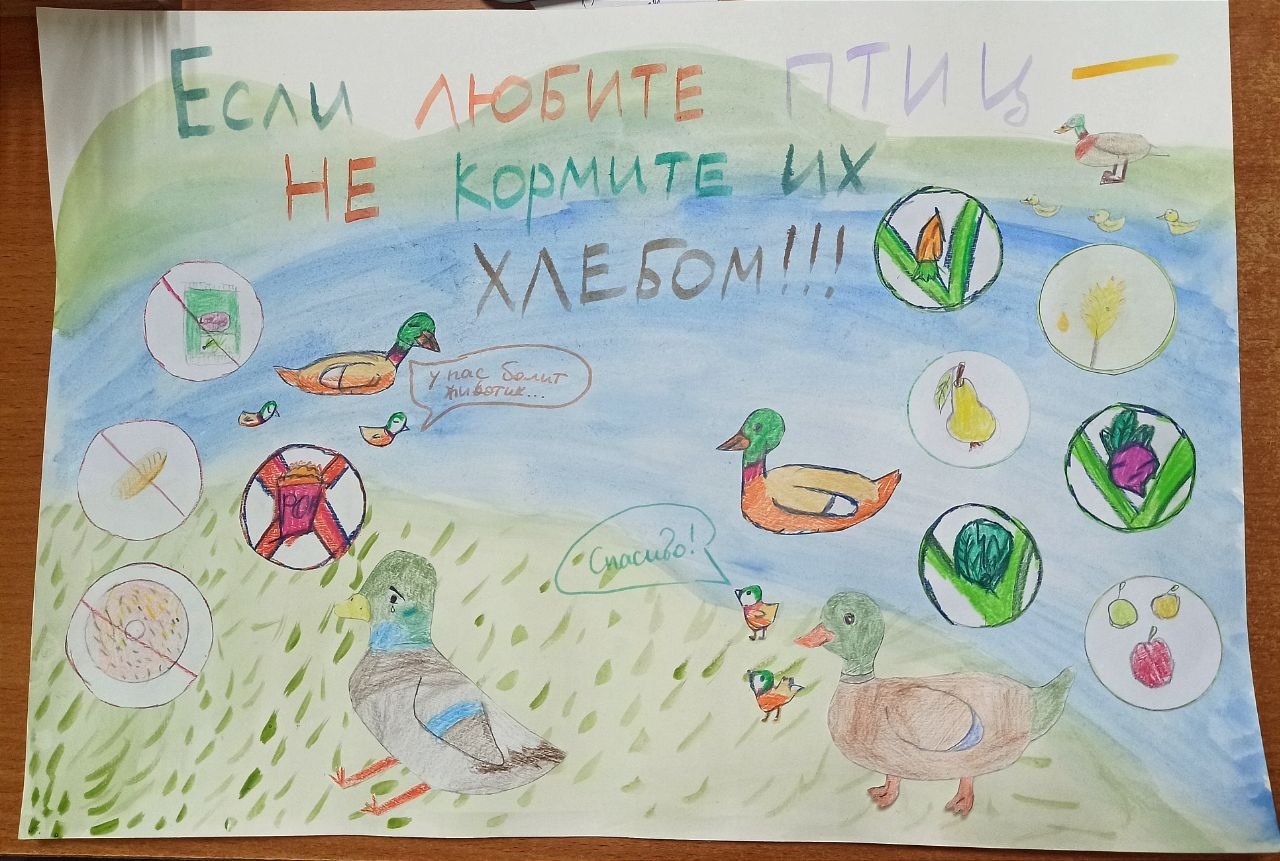 Если ЛЮБИТЕ ПТИЦ —
НЕ КОРМИТЕ ИХ
ХЛЕБОМ!!!
У нас болит
животик...
Спасибо!